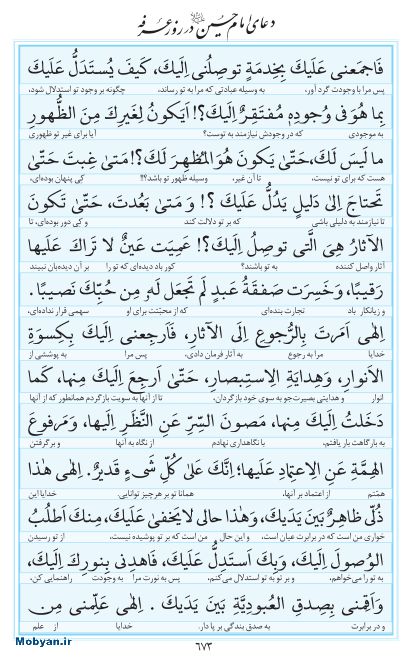 دعای امام حسین در روز عرفه
فَاجْمَعْنی عَلَیْکَ بِخِدْمَةٍ توصِلُنی اِلَیْکَ، کَیْفَ یُسْتَدَلُّ عَلَیْکَ
پس مرا با وجودت گرد آور، به وسیله عبادتی که مرا به تو رساند، چگونه بر وجود تو استدلال شود،
بِما هُوَ فی وُجودِهِ مُفْتَقِرٌ اِلَیْکَ؟! اَیَکونُ لِغَیْرِکَ مِنَ الظُّهورِ
به موجودی که در وجودش نیازمند به توست؟ آیا برای غیر تو ظهوری
ما لَیْسَ لَکَ، حَتّیٰ یَکونَ هُوَ الْمُظْهِرَ لَکَ؟! مَتیٰ غِبْتَ حَتّیٰ
هست که برای تو نیست، تا آن غیر، وسیله ظهور تو باشد؟! کی پنهان بوده‌ای،
تَحْتاجَ اِلیٰ دَلیلٍ یَدُلُّ عَلَیْکَ ؟! وَ مَتیٰ بَعُدْتَ، حَتّیٰ تَکونَ
تا نیازمند به دلیلی باشی که بر تو دلالت کند و کی دور بوده‌ای، تا
الْآثارُ هِیَ الَّتی توصِلُ اِلَیْکَ؟! عَمِیَتْ عَیْنٌ لا تَراکَ عَلَیْها
آثار واصل کننده به تو باشند؟ کور باد دیده‌ای که تو را بر آن دیده‌بان نبیند
رَقیبًا، وَ خَسِرَتْ صَفْقَةُ عَبْدٍ لَمْ تَجْعَلْ لَهُ مِنْ حُبِّکَ نَصیبًا.
و زیانکار باد تجارت بنده‌ای که از محبّتت برای او سهمی قرار نداده‌ای،
اِلٰهی اَمَرْتَ بِالرُّجوعِ اِلَی الْآثارِ، فَارْجِعْنی اِلَیْکَ بِکِسْوَةِ
خدایا مرا به رجوع به آثار فرمان دادی، پس مرا به پوششی از
الْاَنوارِ، وَ هِدایَةِ الْاِسْتِبصارِ، حَتّیٰ اَرْجِعَ اِلَیْکَ مِنْها، کَما
انوار و هدایتی بصیرت‌جو به سوی خود بازگردان، تا از آنها به سویت بازگردم همانطور که از آنها
دَخَلْتُ اِلَیْکَ مِنْها، مَصونَ السِّرِّ عَنِ النَّظَرِ اِلَیْها، وَ مَرْفوعَ
به بارگاهت بار یافتم، با نگاهداری نهادم از نگاه به آنها و برگرفتن
الْهِمَّةِ عَنِ الْاِعْتِمادِ عَلَیْها؛ اِنَّکَ عَلیٰ کُلِّ شَیْءٍ قَدیرٌ. اِلٰهی هٰذا
همّتم از اعتماد بر آنها، همانا تو بر هر چیز توانایی. خدایا این
ذُلّی ظاهِرٌ بَیْنَ یَدَیْکَ، وَ هٰذا حالی لا یَخْفیٰ عَلَیْکَ، مِنْکَ اَطْلُبُ
خواری من است که در برابرت عیان است، و این حال من است که بر تو پوشیده نیست، از تو رسیدن
الْوُصولَ اِلَیْکَ، وَ بِکَ اَسْتَدِلُّ عَلَیْکَ، فَاهْدِنی بِنورِکَ اِلَیْکَ،
به تو را می‌خواهم، و بر تو به تو استدلال می‌کنم، پس به نورت مرا به وجودت راهنمایی کن.
وَ اَقِمْنی بِصِدْقِ الْعُبودِیَّةِ بَیْنَ یَدَیْکَ . اِلٰهی عَلِّمْنی مِنْ
و در برابرت به صدق بندگی بر پا دار. خدایا از علم
۶۷۳
Mobyan.ir